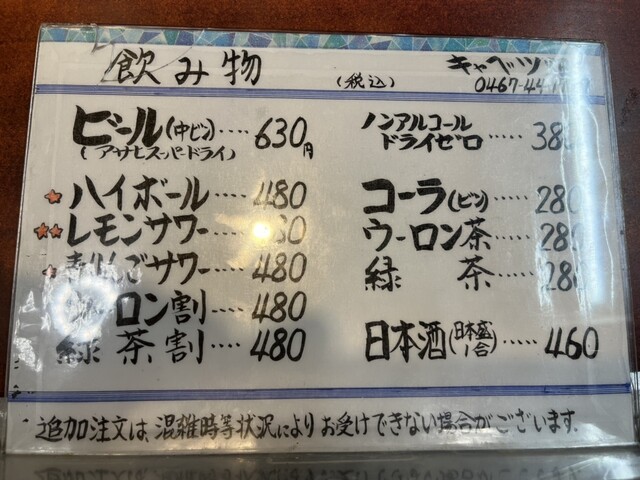 飲み物
(税込)
キャベツ
0467-44
ビール(中ビン)‥‥630円
(アサヒスーパードライ)
★ハイボール‥‥480
★★レモンサワー
りんごサワー‥480
ロン割‥‥480
緑茶割‥‥480
ノンアルコール
ドライゼロ‥‥
コーラ(ビン)‥‥28
ウーロン茶‥‥28
緑 茶‥‥28
日本酒(日本盛1合)‥‥‥460
追加注文は、混雑時等状況によりお受けできない場合がございます.